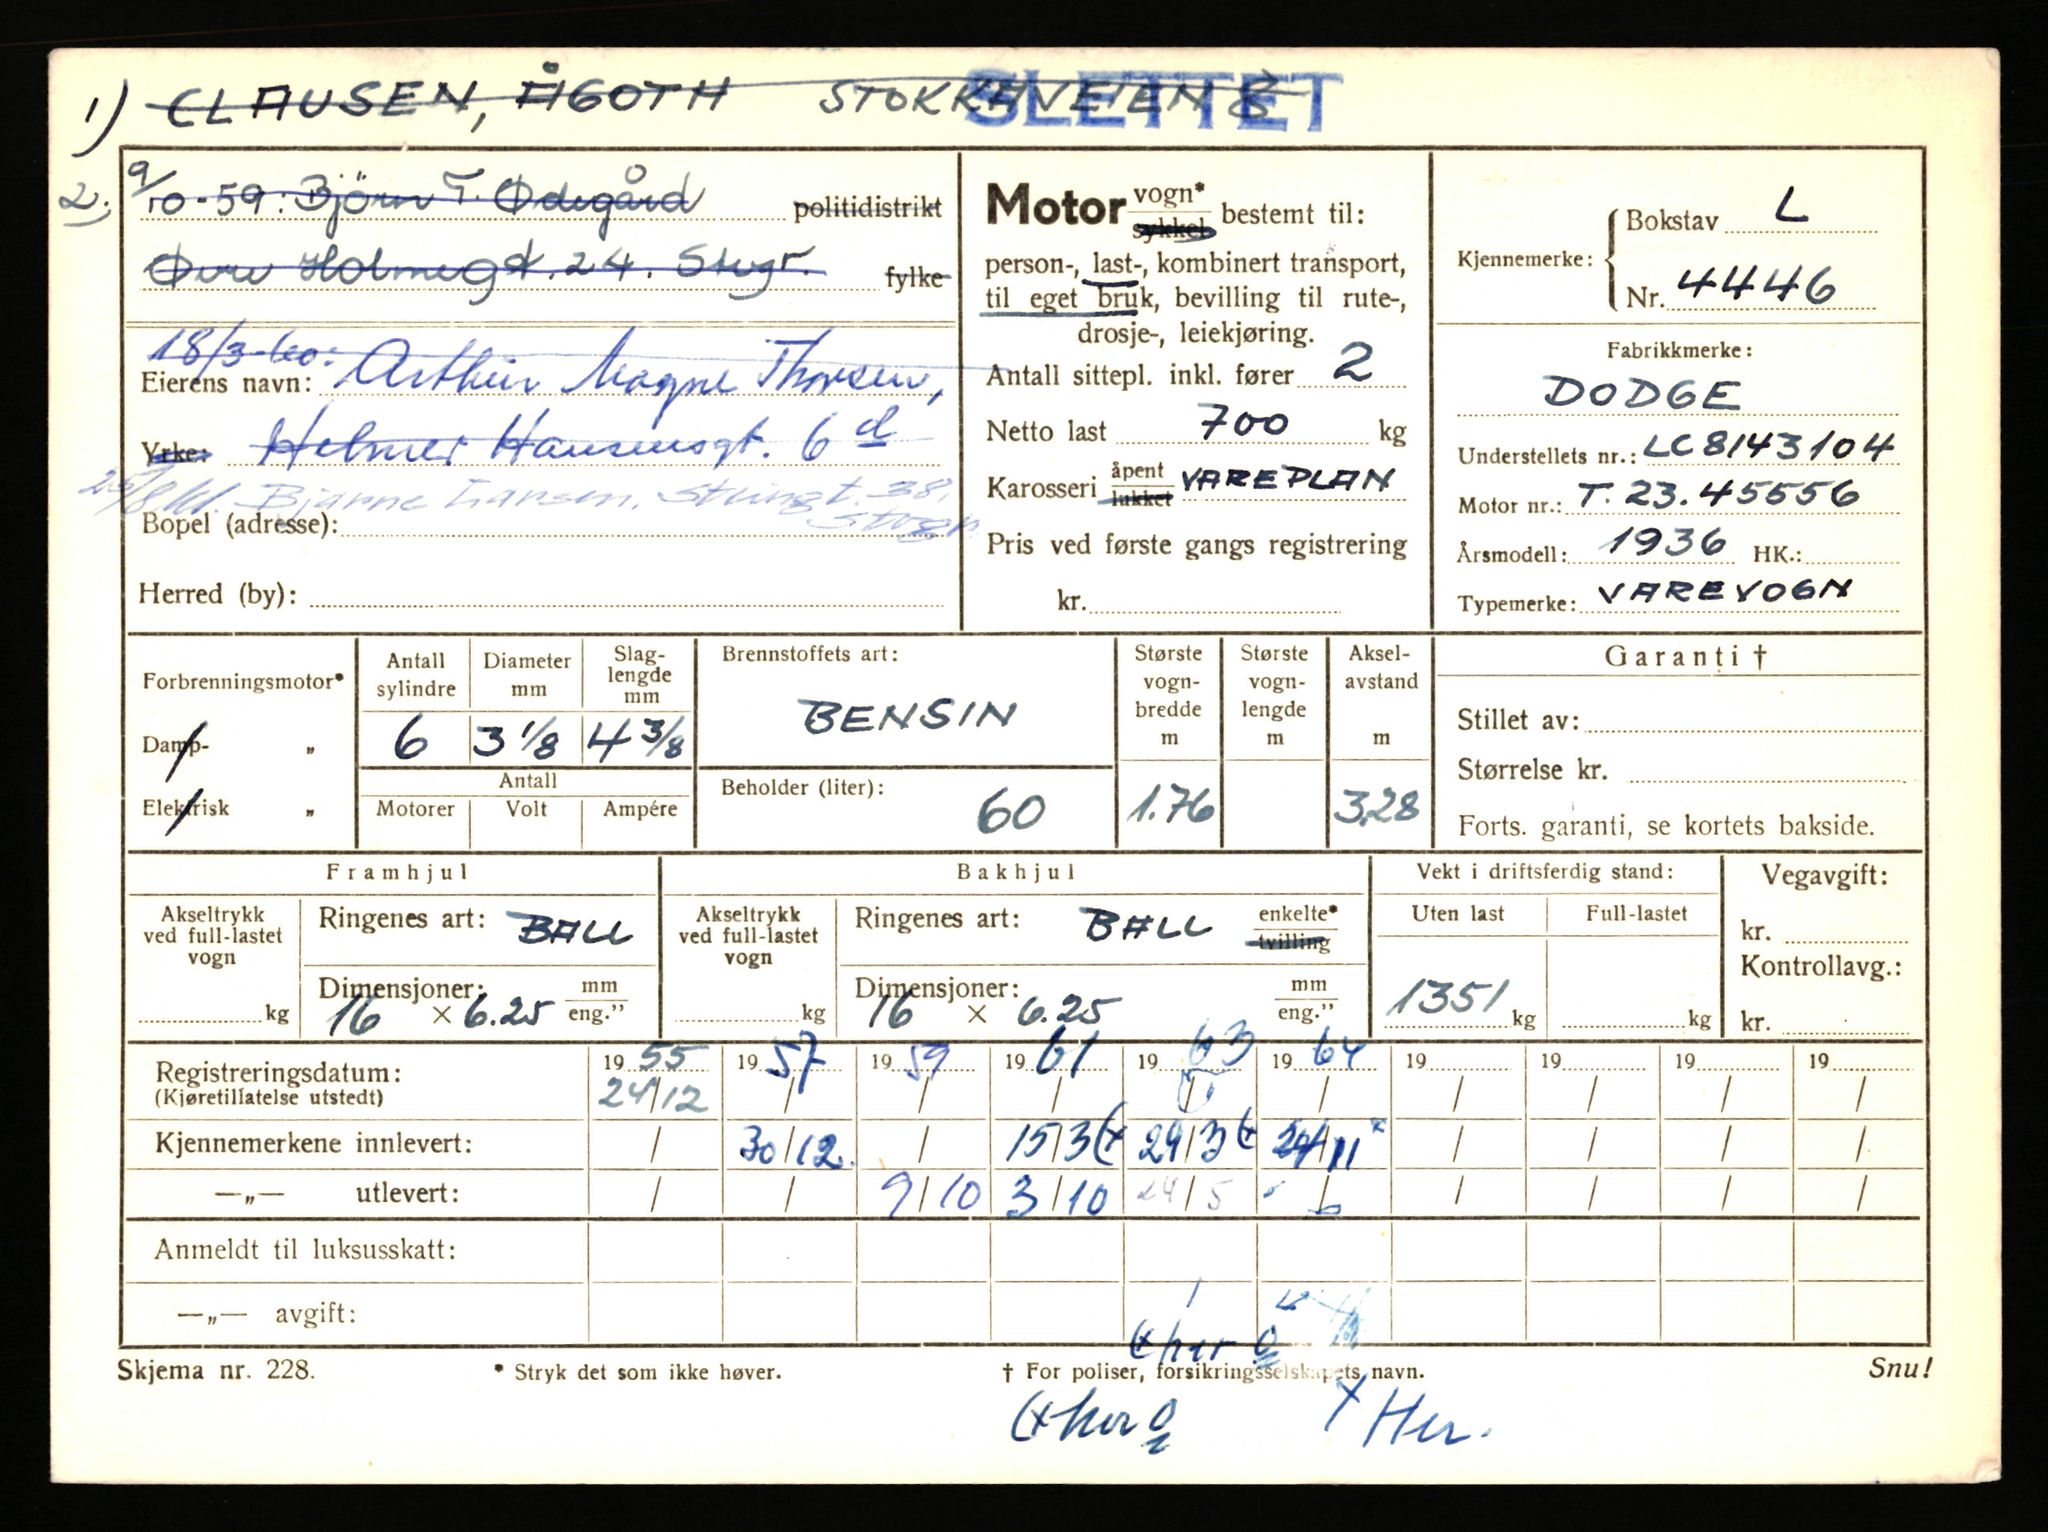 1) CLAUSEN, ÅGOTH STOKKAVEIEN 8
SLETTET
2. 9/10-59: Björn T. Ødegård politidistrikt
Øvre Holmegd. 24. Stvgr. fylke
18/3-60:
Eierens navn: Arthur Magne Thorsen,
Yrke: Helmer Hansensgt. 6 d
Bjarne Larsen,
Bopel (adresse):
Herred (by):
Motor vogn* sykkel bestemt til:
person-, last-, kombinert transport,
til eget bruk, bevilling til rute-,
drosje-, leiekjøring.
Antall sittepl. inkl. fører 2
Netto last 700 kg
Karosseri åpent lukket VAREPLAN
Pris ved første gangs registrering
kr.
Kjennemerke: Bokstav L
Nr. 4446
Fabrikkmerke:
DODGE
Understellets nr.: LC8143104
Motor nr.: T. 23.45556
Årsmodell: 1936 HK.:
Typemerke: VAREVOGN
Forbrenningsmotor*
Damp- „
Elektrisk „
Antall sylindre Diameter mm Slag-lengde mm
6 3 1/8 4 3/8
Antall
Motorer Volt Ampére
Brennstoffets art:
BENSIN
Beholder (liter): 60
Største vogn-bredde m 1.76
Største vogn-lengde m
Aksel-avstand m 3,28
Garanti †
Stillet av:
Størrelse kr.
Forts. garanti, se kortets bakside.
Framhjul
Akseltrykk ved full-lastet vogn kg
Ringenes art: BALL
Dimensjoner: 16 × 6.25 mm eng."
Bakhjul
Akseltrykk ved full-lastet vogn kg
Ringenes art: BALL enkelte* tvilling
Dimensjoner: 16 × 6.25 mm eng."
Vekt i driftsferdig stand:
Uten last Full-lastet
1351 kg kg
Vegavgift:
kr.
Kontrollavg.:
kr.
Registreringsdatum: 1955 1957 1959 1961 1963 1964 19 19 19 19
(Kjøretillatelse utstedt) 24/12 / / / / / / / / /
Kjennemerkene innlevert: / 30/12. / 15/3 (x 29/3 (x 24/11 x / / / /
—„— utlevert: / / 9/10 3/10 24/5 / / / / /
Anmeldt til luksusskatt:
—„— avgift:
(x her
Skjema nr. 228. * Stryk det som ikke høver. † For poliser, forsikringsselskapets navn. Snu!
(x her x Her.